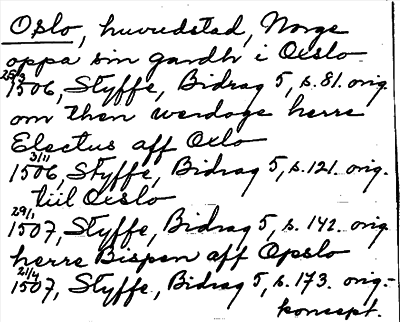 Oslo, huvudstad, Norge
oppa sin gardh i Oeslo
25/3 1506, Styffe, Bidrag 5, s. 81. orig.
om then werdoge herre
Electus aff Oxlo
3/11 1506, Styffe, Bidrag 5, s. 121. orig.
tiil Oeslo
29/1 1507, Styffe, Bidrag 5, s. 142. orig.
herre Bispen aff Opslo
21/4 1507, Styffe, Bidrag 5, s. 173. orig.-
koncept.